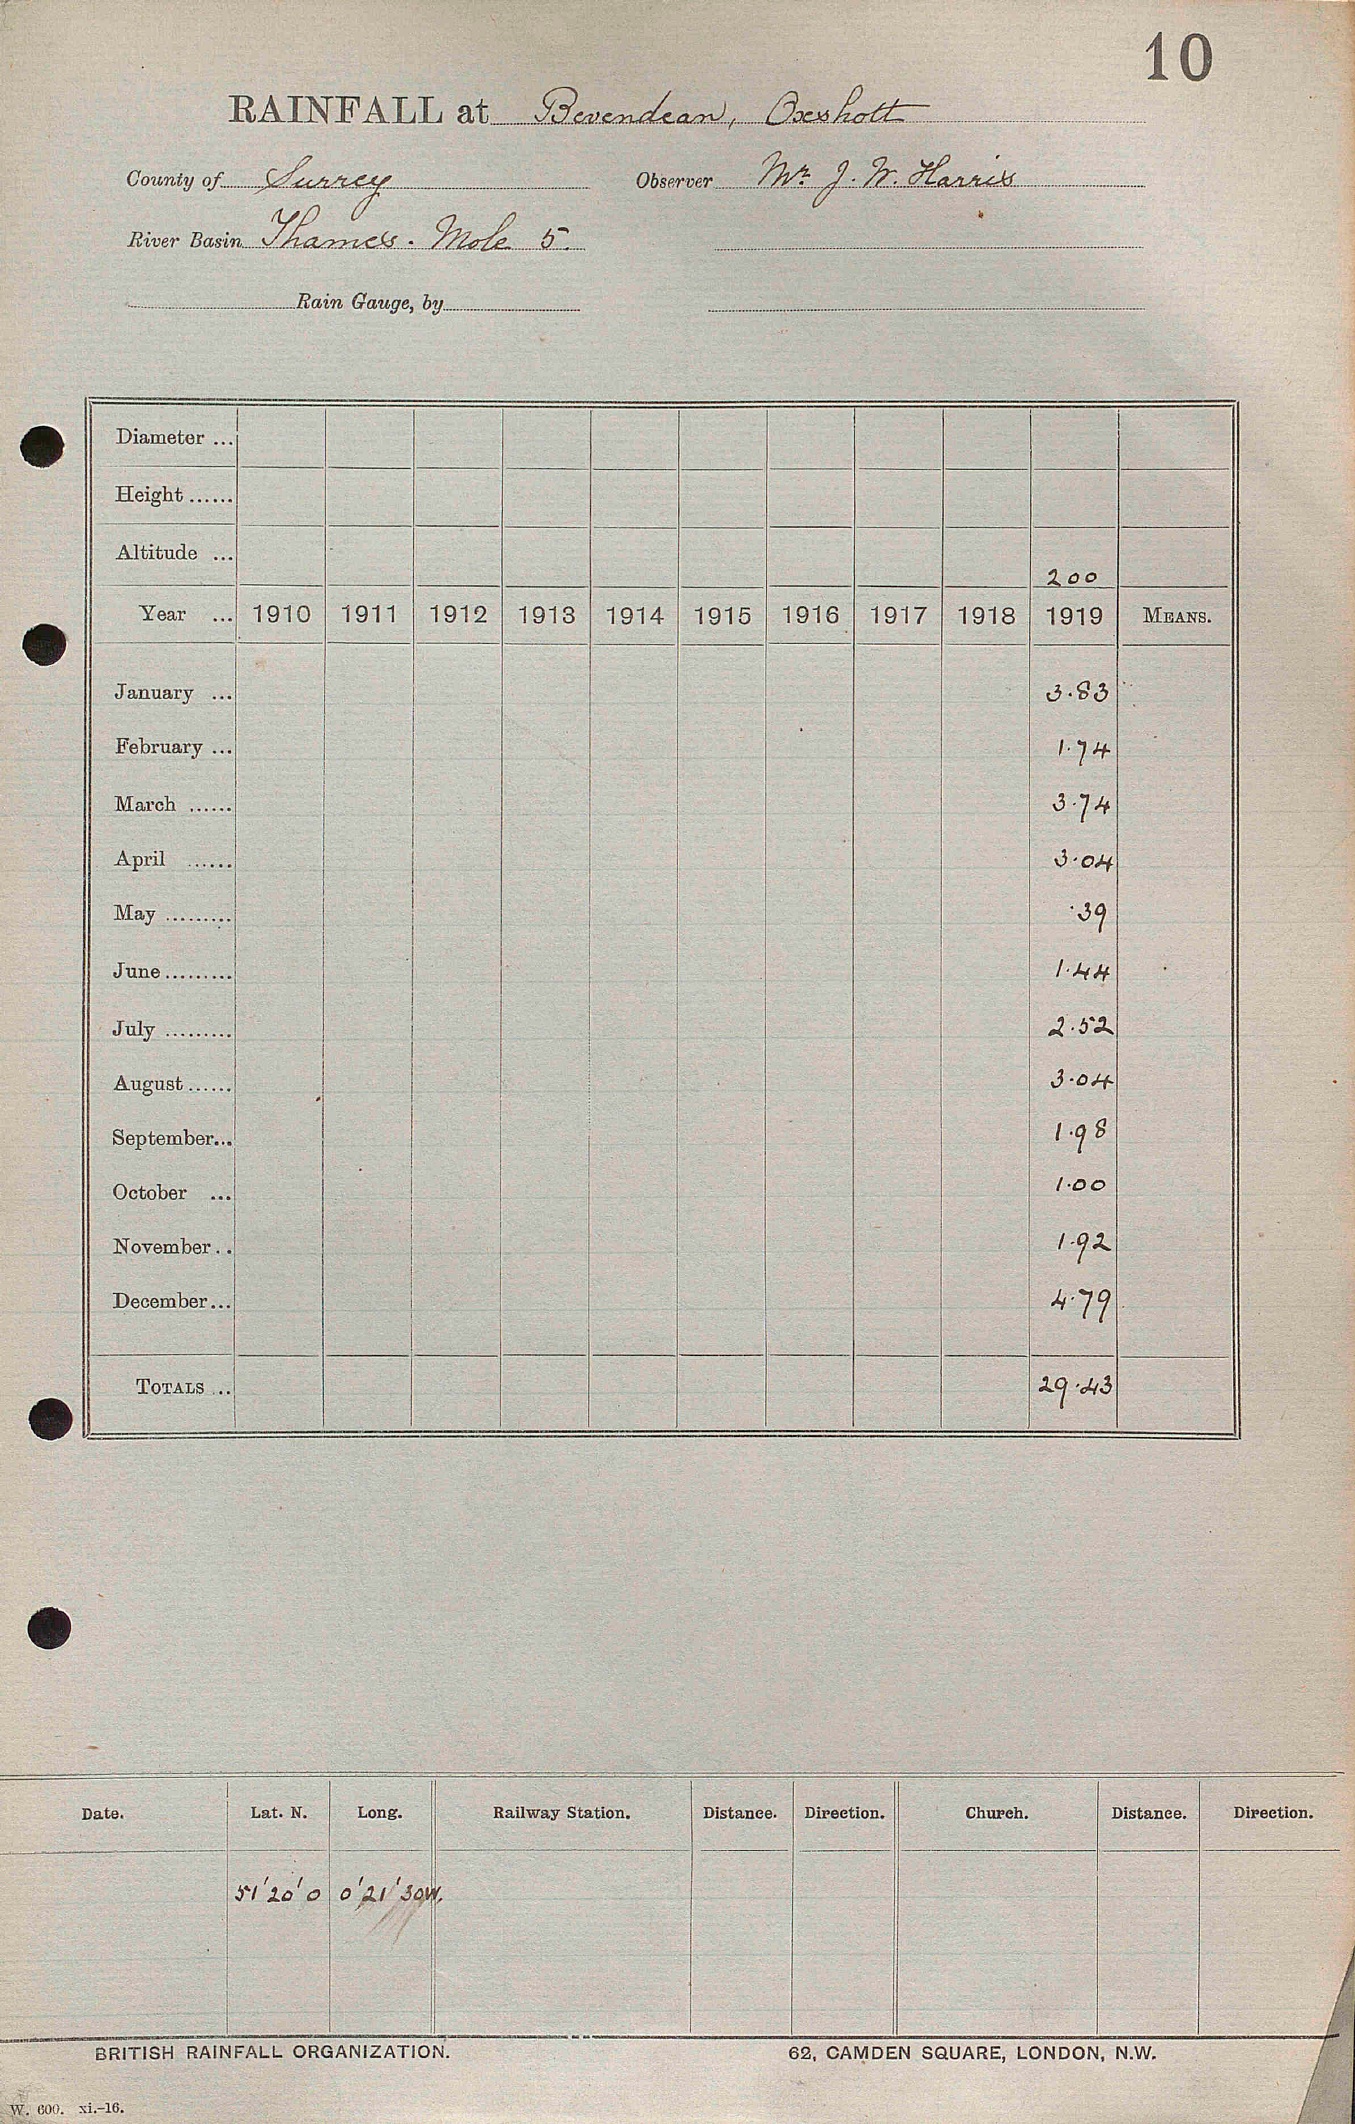 10
RAINFALL at Bevendean, Oxshott
County of Surrey Observer Mr. J. W. Harris
River Basin Thames. Mole 5.
Rain Gauge, by
Diameter ...
Height ......
Altitude ... 200
Year ... 1910 1911 1912 1913 1914 1915 1916 1917 1918 1919 MEANS.
January ... 3.83
February ... 1.74
March ...... 3.74
April ...... 3.04
May ......... .39
June ......... 1.44
July ......... 2.52
August ...... 3.04
September... 1.98
October ... 1.00
November .. 1.92
December... 4.79
TOTALS ... 29.43
Date. Lat. N. Long. Railway Station. Distance. Direction. Church. Distance. Direction.
51'20'0 0'21'30W.
BRITISH RAINFALL ORGANIZATION. 62, CAMDEN SQUARE, LONDON, N.W.
W. 600. xi.-16.